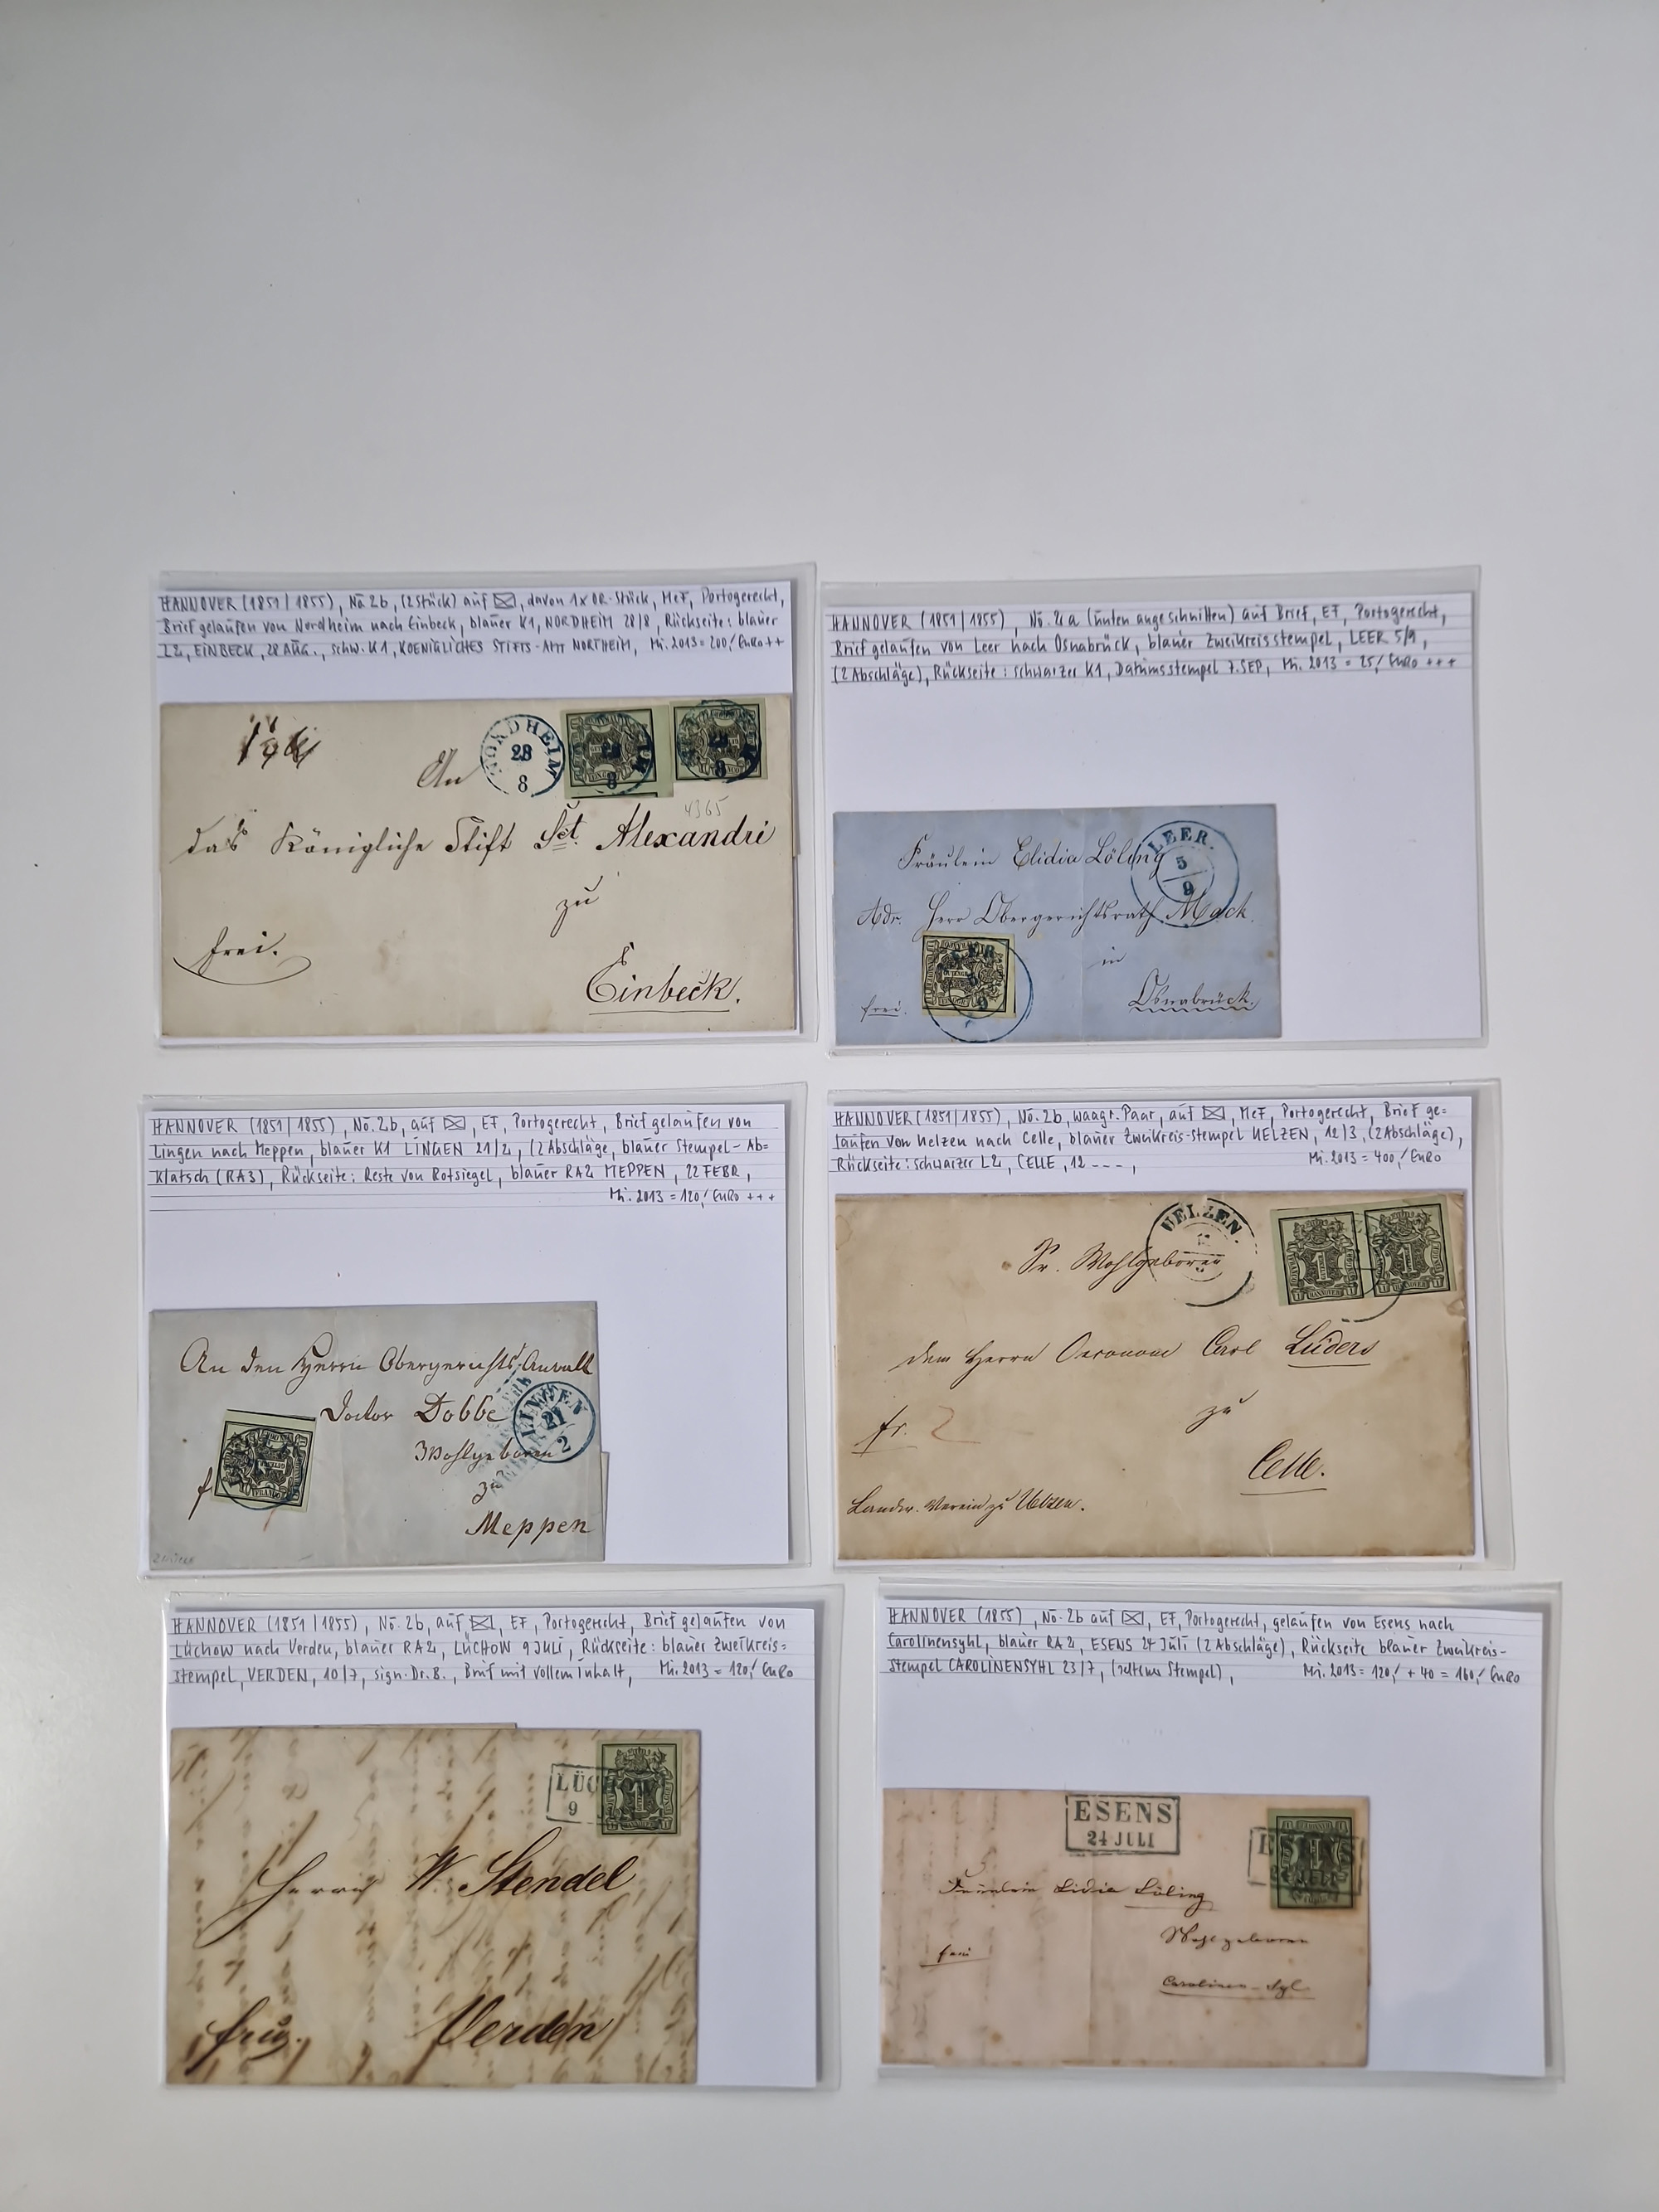 HANNOVER (1851/1855), No 2b, (2 Stück) auf, davon 1x OR-Stück, MeF, Portogerecht,
Brief gelaufen von Nordheim nach Einbeck, blauer K1, NORDHEIM 28/8, Rückseite: blauer
L2, EINBECK, 28 AUG., schw. K1, KOENIGLICHES STIFTS-AMT NORTHEIM, Mi. 2013 = 200,- Euro ++
An
NORDHEIM
28
8
28
8
28
8
4365
das Königliche Stift Sct. Alexandri
zu
frei.
Einbeck.
HANNOVER (1851/1855), No. 2a (unten angeschnitten) auf Brief, EF, Portogerecht,
Brief gelaufen von Leer nach Osnabrück, blauer Zweikreisstempel, LEER 5/9,
(2 Abschläge), Rückseite: schwarzer K1, Datumsstempel 7. SEP, Mi. 2013 = 25,- Euro +++
LEER.
5
9
Fräulein Elidia Löling
Adr. Herr Obergerichtsrath Mack.
in
LEER
9
frei.
Osnabrück.
HANNOVER (1851/1855), No. 2b, auf, EF, Portogerecht, Brief gelaufen von
Lingen nach Meppen, blauer K1 LINGEN 21/2, (2 Abschläge, blauer Stempel-Ab=
klatsch (RA3), Rückseite: Reste von Rotsiegel, blauer RA2 MEPPEN, 22 FEBR,
Mi. 2013 = 120,- Euro +++
An den Herrn Obergerichts-Anwalt
Doctor Dobbe
LINGEN
21
2
Wohlgeboren
zu
f
Meppen
HANNOVER (1851/1855), No. 2b, waagr. Paar, auf, MeF, Portogerecht, Brief ge=
laufen von Uelzen nach Celle, blauer Zweikreis-stempel UELZEN, 12/3, (2 Abschläge),
Rückseite: schwarzer L2, CELLE, 12 ---, Mi. 2013 = 400,- Euro
UELZEN.
1 HANNOVER
1 HANNOVER
Sr. Wohlgeboren
dem Herrn Oeconom Carl Lüders
zu
fr. 2
Celle.
Landw. Verein zu Uelzen.
HANNOVER (1851/1855), No. 2b, auf, EF, Portogerecht, Brief gelaufen von
Lüchow nach Verden, blauer RA2, LÜCHOW 9 JULI, Rückseite: blauer Zweikreis=
stempel, VERDEN, 10/7, sign. Dr. B., Brief mit vollem Inhalt, Mi. 2013 = 120,- Euro
LÜC
9
1
HANNOVER
Herrn W. Stendel
Verden
HANNOVER (1855), No. 2b auf, EF, Portogerecht, gelaufen von Esens nach
Carolinensyhl, blauer RA2, ESENS 24 Juli (2 Abschläge), Rückseite blauer Zweikreis-
stempel CAROLINENSYHL 23/7, (seltener Stempel), Mi. 2013 = 120,- + 40 = 160,- Euro
ESENS
24 JULI
Fräulein Lidia Löling
Wohlgeboren
frei
Carolinen-Syl